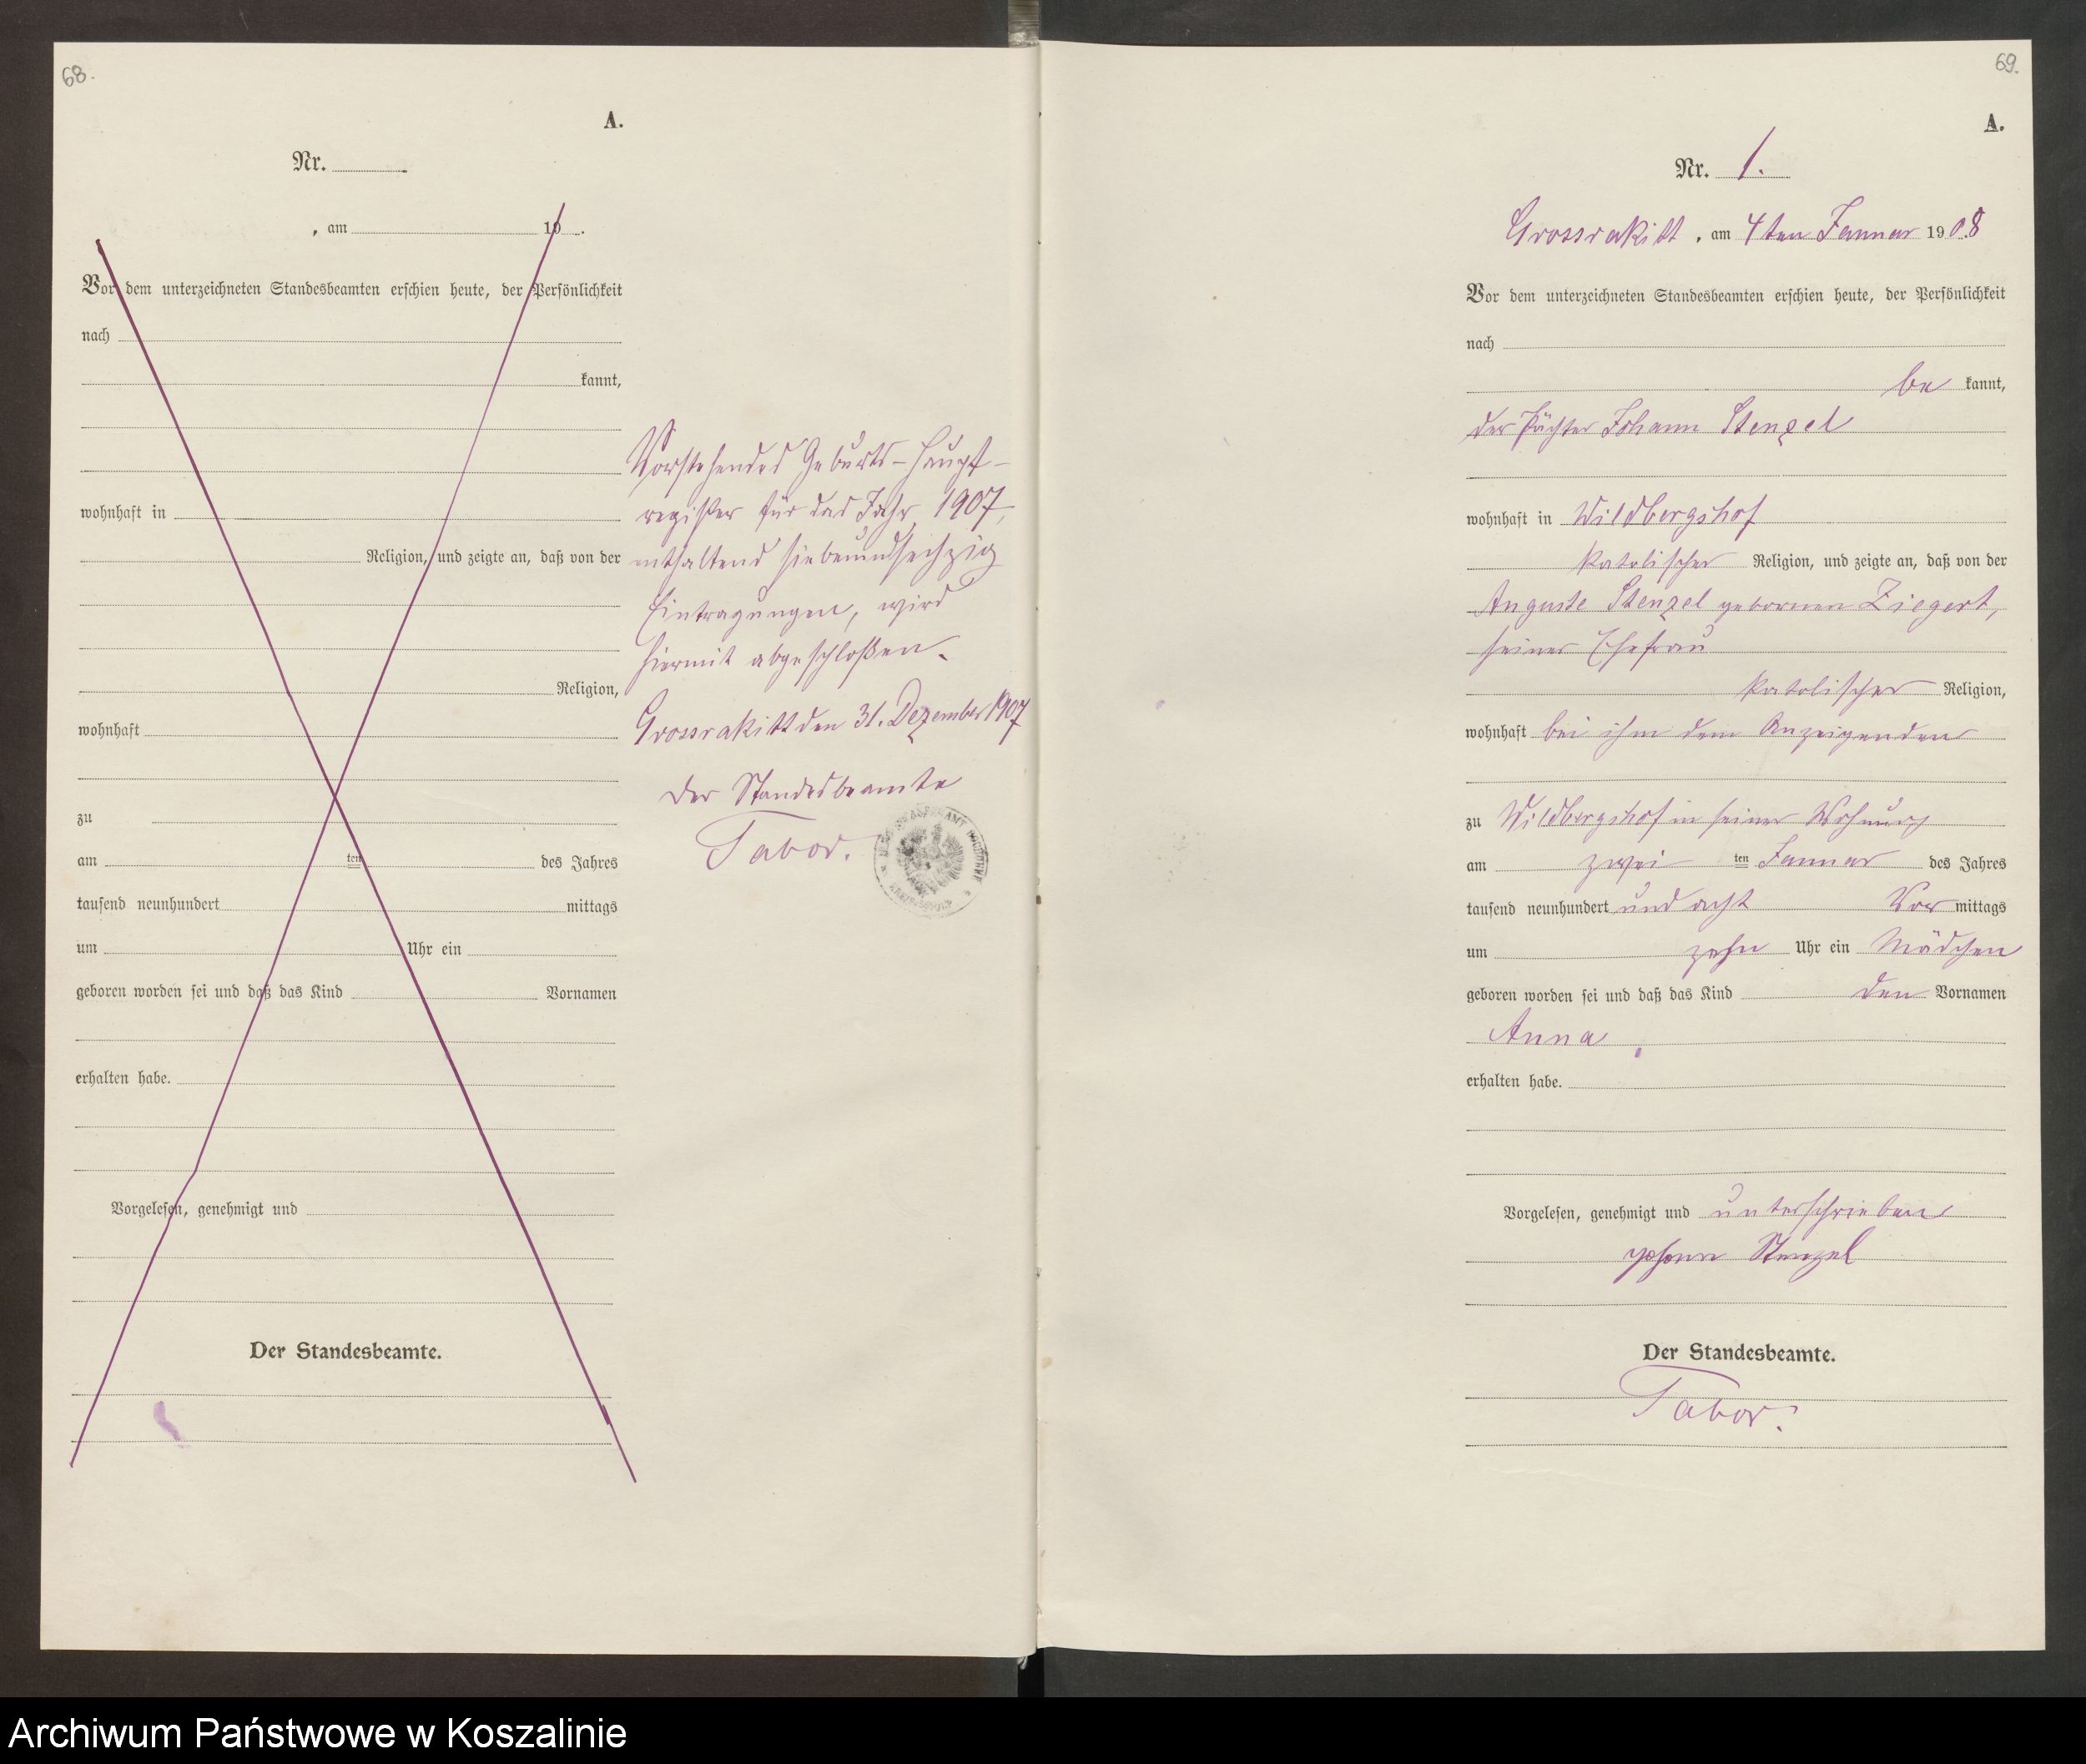 68.
A.
Nr.
, am 19 .
Vor dem unterzeichneten Standesbeamten erschien heute, der Persönlichkeit
nach
kannt,
wohnhaft in
Religion, und zeigte an, daß von der
Religion,
wohnhaft
zu
am ten des Jahres
tausend neunhundert mittags
um Uhr ein
geboren worden sei und daß das Kind Vornamen
erhalten habe.
Vorgelesen, genehmigt und
Der Standesbeamte.
Vorstehendes Geburts-Haupt-
register für das Jahr 1907,
enthaltend siebenundsechzig
Eintragungen, wird
hiermit abgeschloßen.
Grossrakitt den 31. Dezember 1907
Der Standesbeamte
Tabor.
69.
A.
Nr. 1.
Grossrakitt, am 4ten Januar 1908
Vor dem unterzeichneten Standesbeamten erschien heute, der Persönlichkeit
nach
be kannt,
der Pächter Johann Stenzel
wohnhaft in Wildbergshof
katolischer Religion, und zeigte an, daß von der
Auguste Stenzel geborenen Ziegert,
seiner Ehefrau
katolischer Religion,
wohnhaft bei ihm dem Anzeigenden
zu Wildbergshof in seiner Wohnung
am zwei ten Januar des Jahres
tausend neunhundert und acht Vor mittags
um zehn Uhr ein Mädchen
geboren worden sei und daß das Kind den Vornamen
Anna
erhalten habe.
Vorgelesen, genehmigt und unterschrieben
Johann Stenzel
Der Standesbeamte.
Tabor.
Archiwum Państwowe w Koszalinie